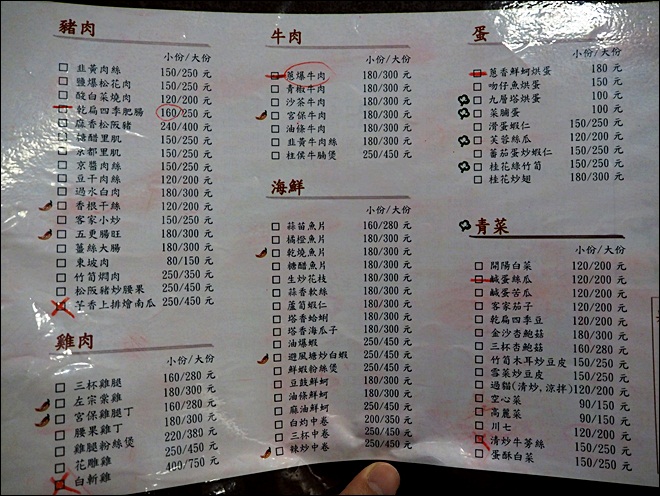 豬肉
小份/大份
韭黃肉絲 150/250 元
鹽爆松花肉 150/250 元
酸白菜燒肉 120/200 元
乾扁四季肥腸 160/250 元
蒜香松阪豬 240/400 元
糖醋里肌 150/250 元
京都里肌 150/250 元
京醬肉絲 150/250 元
豆干肉絲 120/200 元
過水白肉 180/300 元
香根干絲 120/200 元
客家小炒 150/250 元
五更腸旺 180/300 元
薑絲大腸 180/300 元
東坡肉 80/150 元
竹筍焢肉 250/350 元
松阪豬炒腰果 250/450 元
芋香上排燴南瓜 250/450 元
雞肉
小份/大份
三杯雞腿 160/280 元
左宗棠雞 180/300 元
宮保雞腿丁 160/280 元
腰果雞丁 180/300 元
雞腿粉絲煲 220/380 元
花雕雞 250/450 元
白斬雞 400/750 元
牛肉
小份/大份
蔥爆牛肉 180/300 元
青椒牛肉 180/300 元
沙茶牛肉 180/300 元
宮保牛肉 180/300 元
油條牛肉 180/300 元
韭黃牛肉絲 180/300 元
柱侯牛腩煲 250/450 元
海鮮
小份/大份
蒜苗魚片 160/280 元
橘橙魚片 180/300 元
乾燒魚片 180/300 元
糖醋魚片 180/300 元
生炒花枝 180/300 元
蒜香軟絲 180/300 元
蘆筍蝦仁 180/300 元
塔香蛤蜊 180/300 元
塔香海瓜子 180/300 元
油爆蝦 250/450 元
避風塘炒白蝦 250/450 元
鮮蝦粉絲煲 250/450 元
豆鼓鮮蚵 180/300 元
油條鮮蚵 180/300 元
麻油鮮蚵 250/450 元
白灼中卷 250/450 元
三杯中卷 250/450 元
辣炒中卷 250/450 元
蛋
小份/大份
蔥香鮮蚵烘蛋 180 元
吻仔魚烘蛋 150 元
九層塔烘蛋 100 元
菜脯蛋 100 元
滑蛋蝦仁 150/250 元
芙蓉絲瓜 120/200 元
蕃茄蛋炒蝦仁 150/250 元
桂花綠竹筍 150/250 元
桂花炒翅 180/300 元
青菜
小份/大份
開陽白菜 120/200 元
鹹蛋絲瓜 120/200 元
鹹蛋苦瓜 120/200 元
客家茄子 120/200 元
乾扁四季豆 120/200 元
金沙杏鮑菇 160/280 元
三杯杏鮑菇 160/280 元
竹筍木耳炒豆皮 150/250 元
雪菜炒豆皮 150/250 元
過貓(清炒,涼拌) 120/200 元
空心菜 90/150 元
高麗菜 90/150 元
川七 120/200 元
清炒牛蒡絲 150/250 元
蛋酥白菜 150/250 元